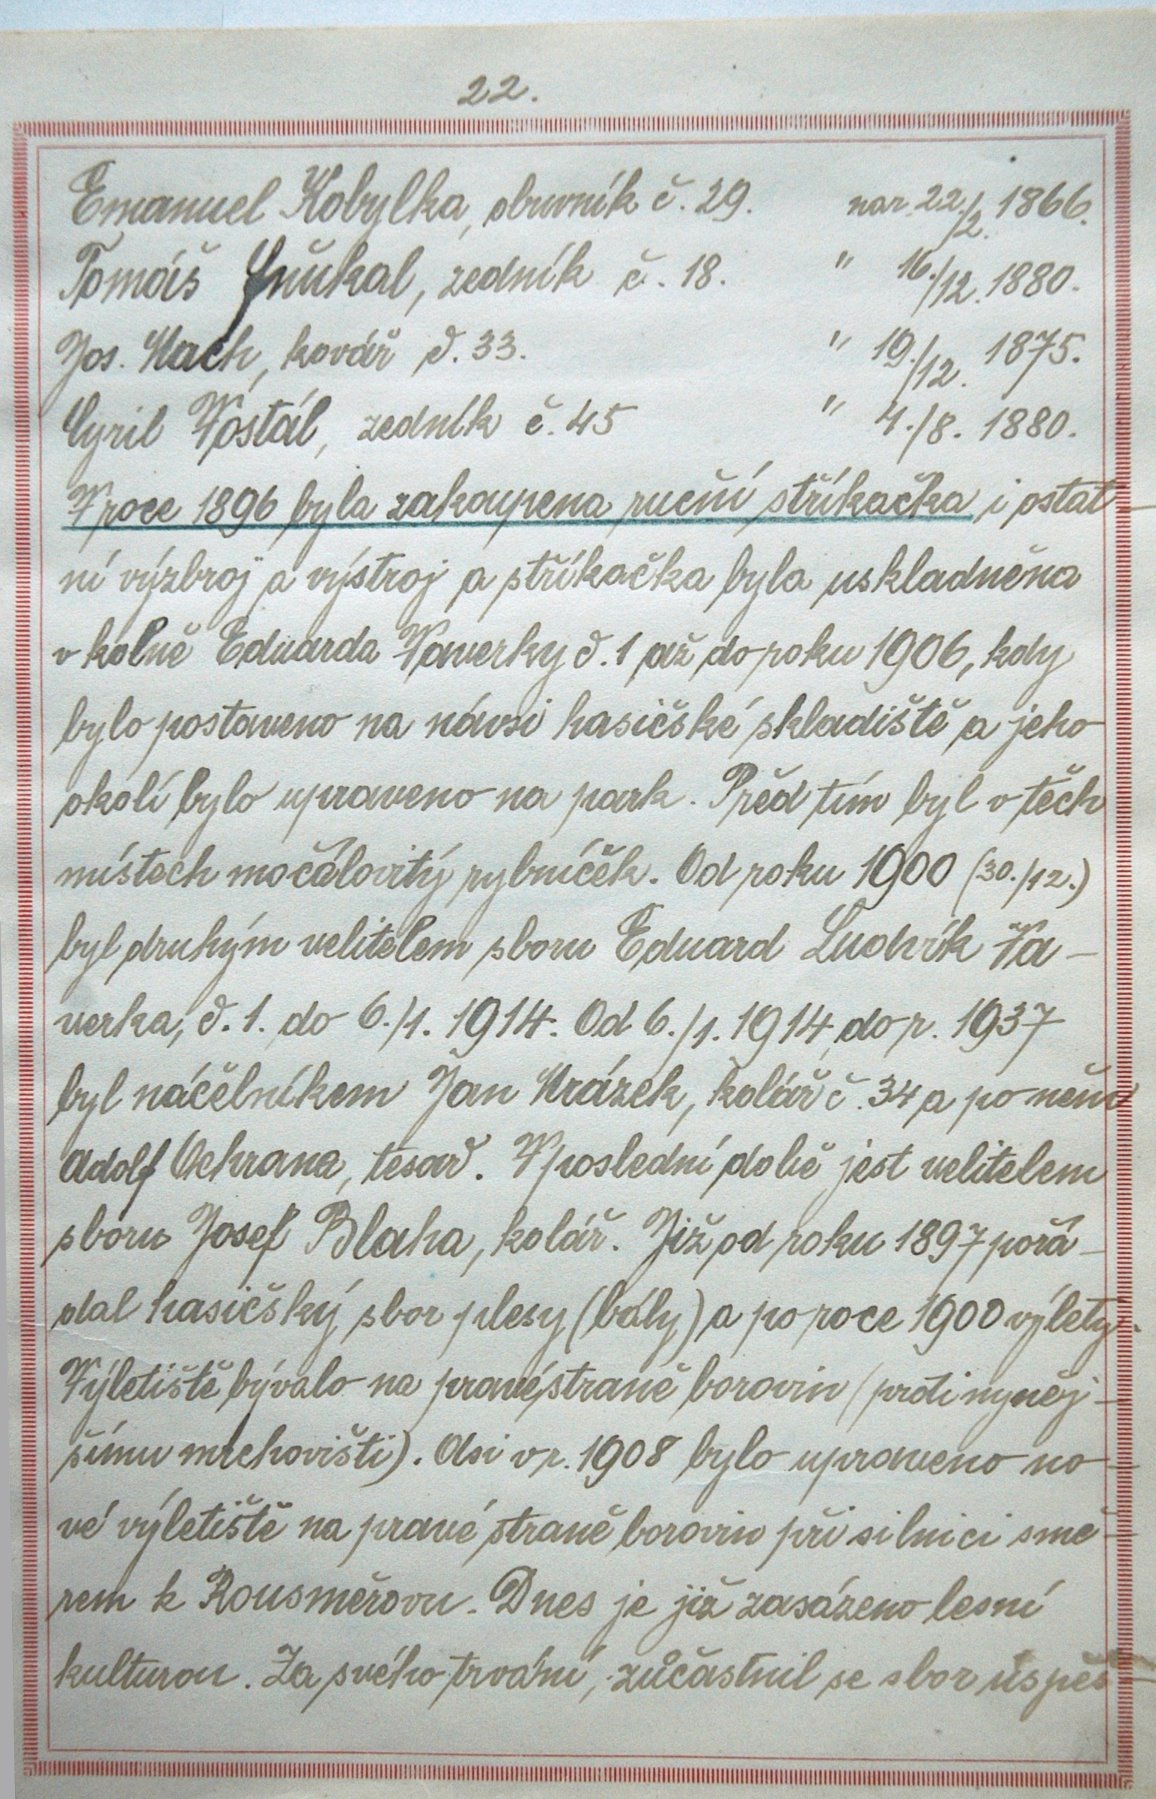 22.
Emanuel Kobylka, obuvník č. 29. nar. 22./2. 1866.
Tomáš zedník č. 18. " 16./12. 1880.
Jos. Mach, kovář č. 33. " 19./12. 1875.
Cyril Vostál, zedník č. 45 " 4./8. 1880.
V roce 1896 byla zakoupena ruční stříkačka i ostat-
ní výzbroj a výstroj a stříkačka byla uskladněna
v kolně Eduarda Vaverky č. 1 až do roku 1906, kdy
bylo postaveno na návsi hasičské skladiště a jeho
okolí bylo upraveno na park. Před tím byl v těch
místech močálovitý rybníček. Od roku 1900 (30./12.)
byl druhým velitelem sboru Eduard Ludvík Va-
verka, č. 1. do 6./1. 1914. Od 6./1. 1914 do r. 1937
byl náčelníkem Jan Mrázek, kolář č. 34 a po něm
Adolf Ochrana, tesař. V poslední době jest velitelem
sboru Josef Blaha, kolář. Již od roku 1897 pořá-
dal hasičský sbor plesy (bály) a po roce 1900 výlety.
Výletiště bývalo na pravé straně borovin (proti nyněj-
šímu mrchovišti). Asi v r. 1908 bylo upraveno no-
vé výletiště na pravé straně borovin při silnici smě-
rem k Rousměrovu. Dnes je již zasázeno lesní
kulturou. Za svého trvání, zůčastnil se sbor úspěš-